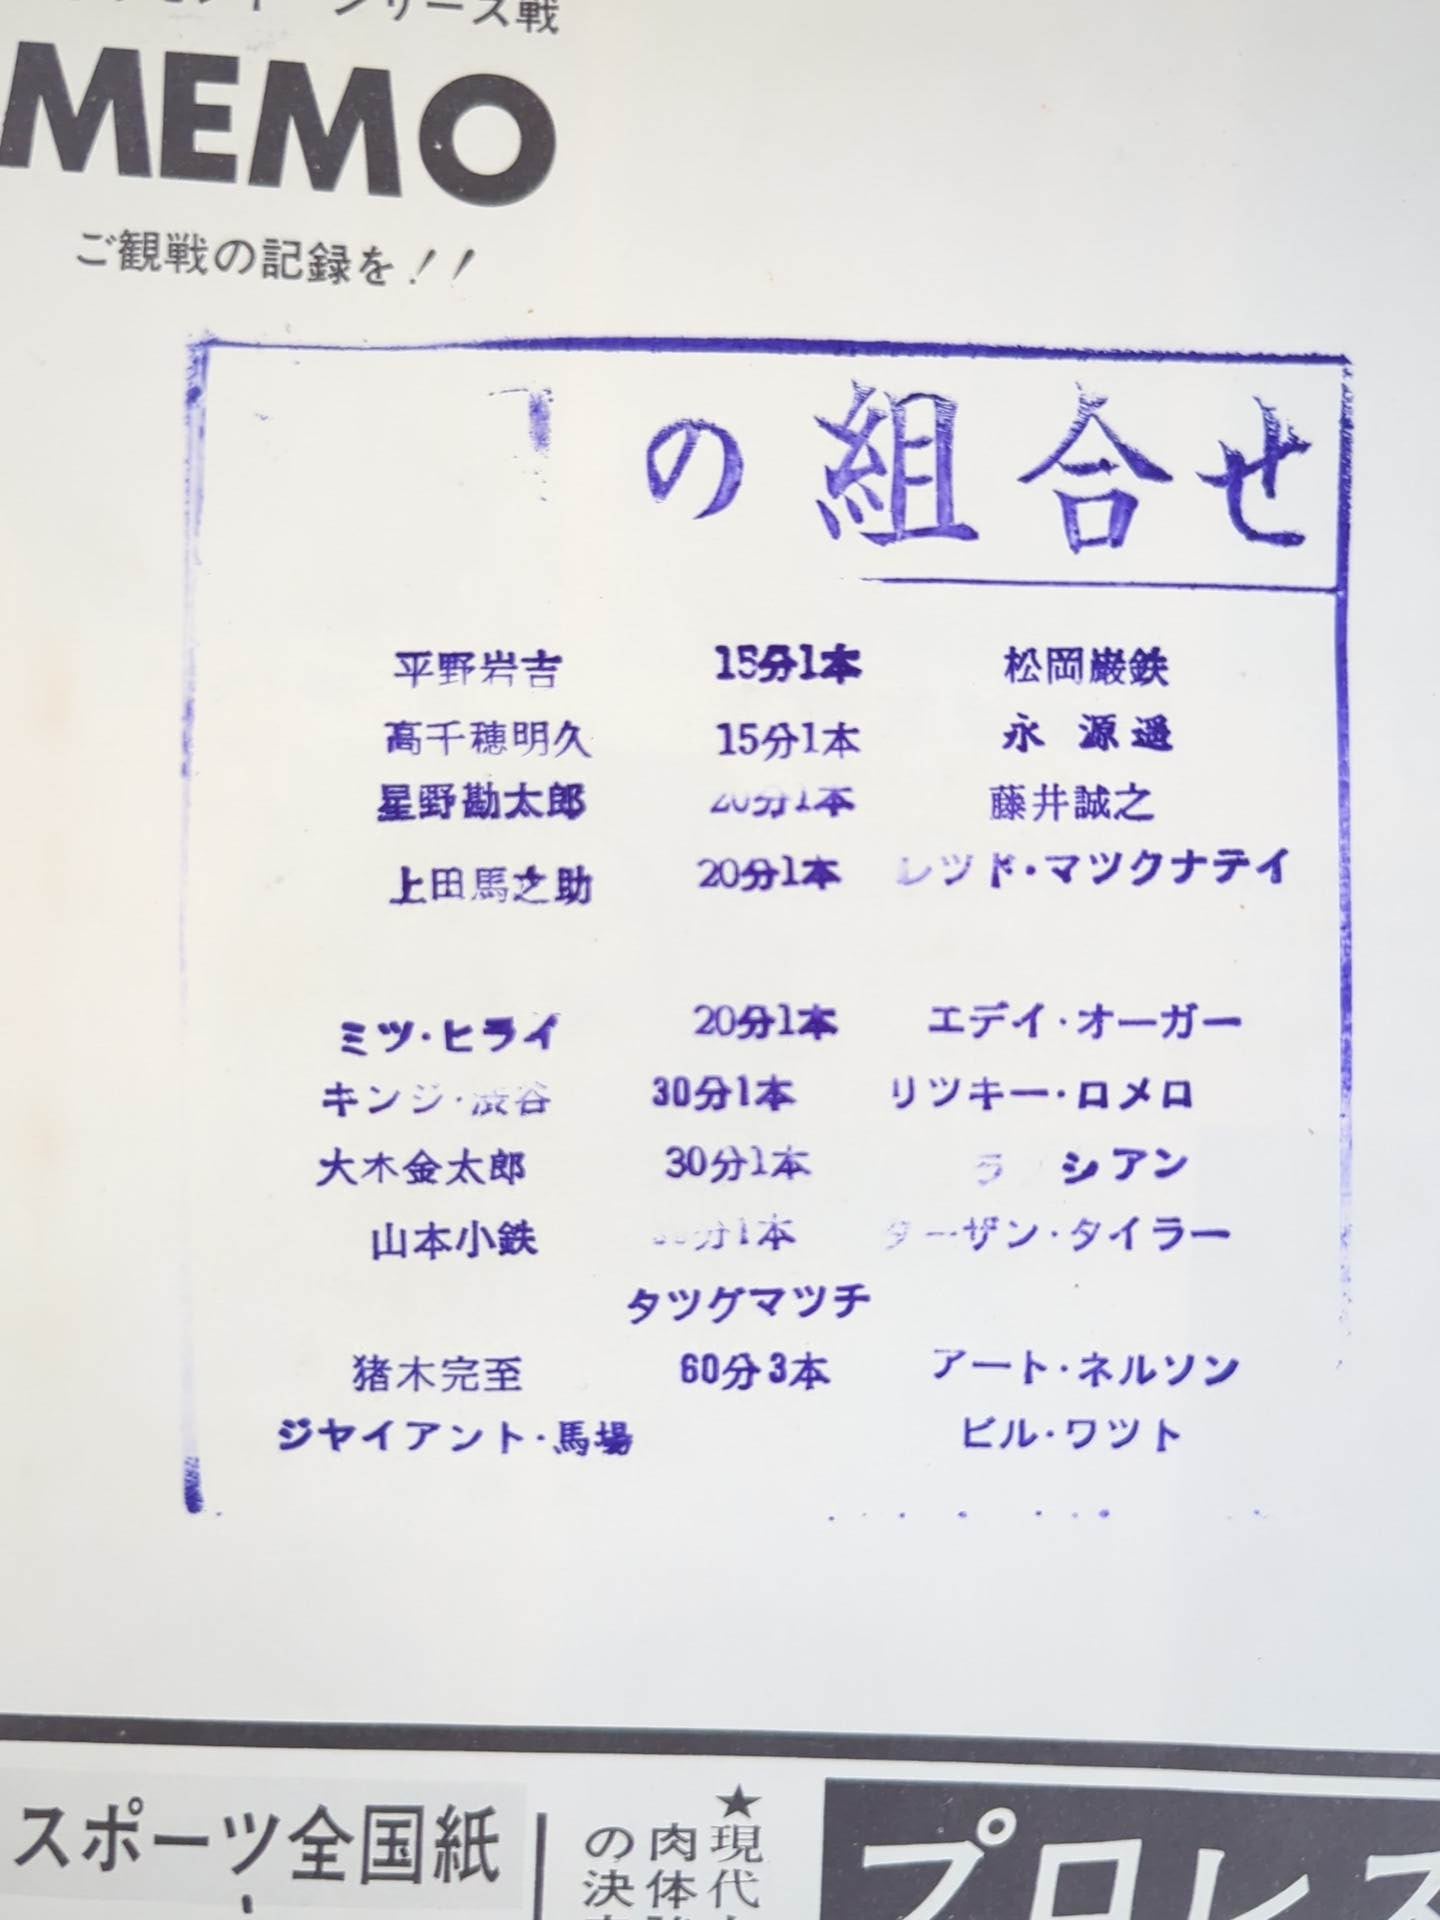 シリーズ戦
MEMO
ご観戦の記録を!!
の組合せ
平野岩吉 15分1本 松岡巌鉄
高千穂明久 15分1本 永源遥
星野勘太郎 20分1本 藤井誠之
上田馬之助 20分1本 レツド・マツクナテイ
ミツ・ヒライ 20分1本 エデイ・オーガー
キンジ・渋谷 30分1本 リツキー・ロメロ
大木金太郎 30分1本 ラ シアン
山本小鉄 分1本 ターザン・タイラー
タツグマツチ
猪木完至 60分3本 アート・ネルソン
ジヤイアント・馬場 ビル・ワツト
スポーツ全国紙
★現代
肉体
の決
プロレス